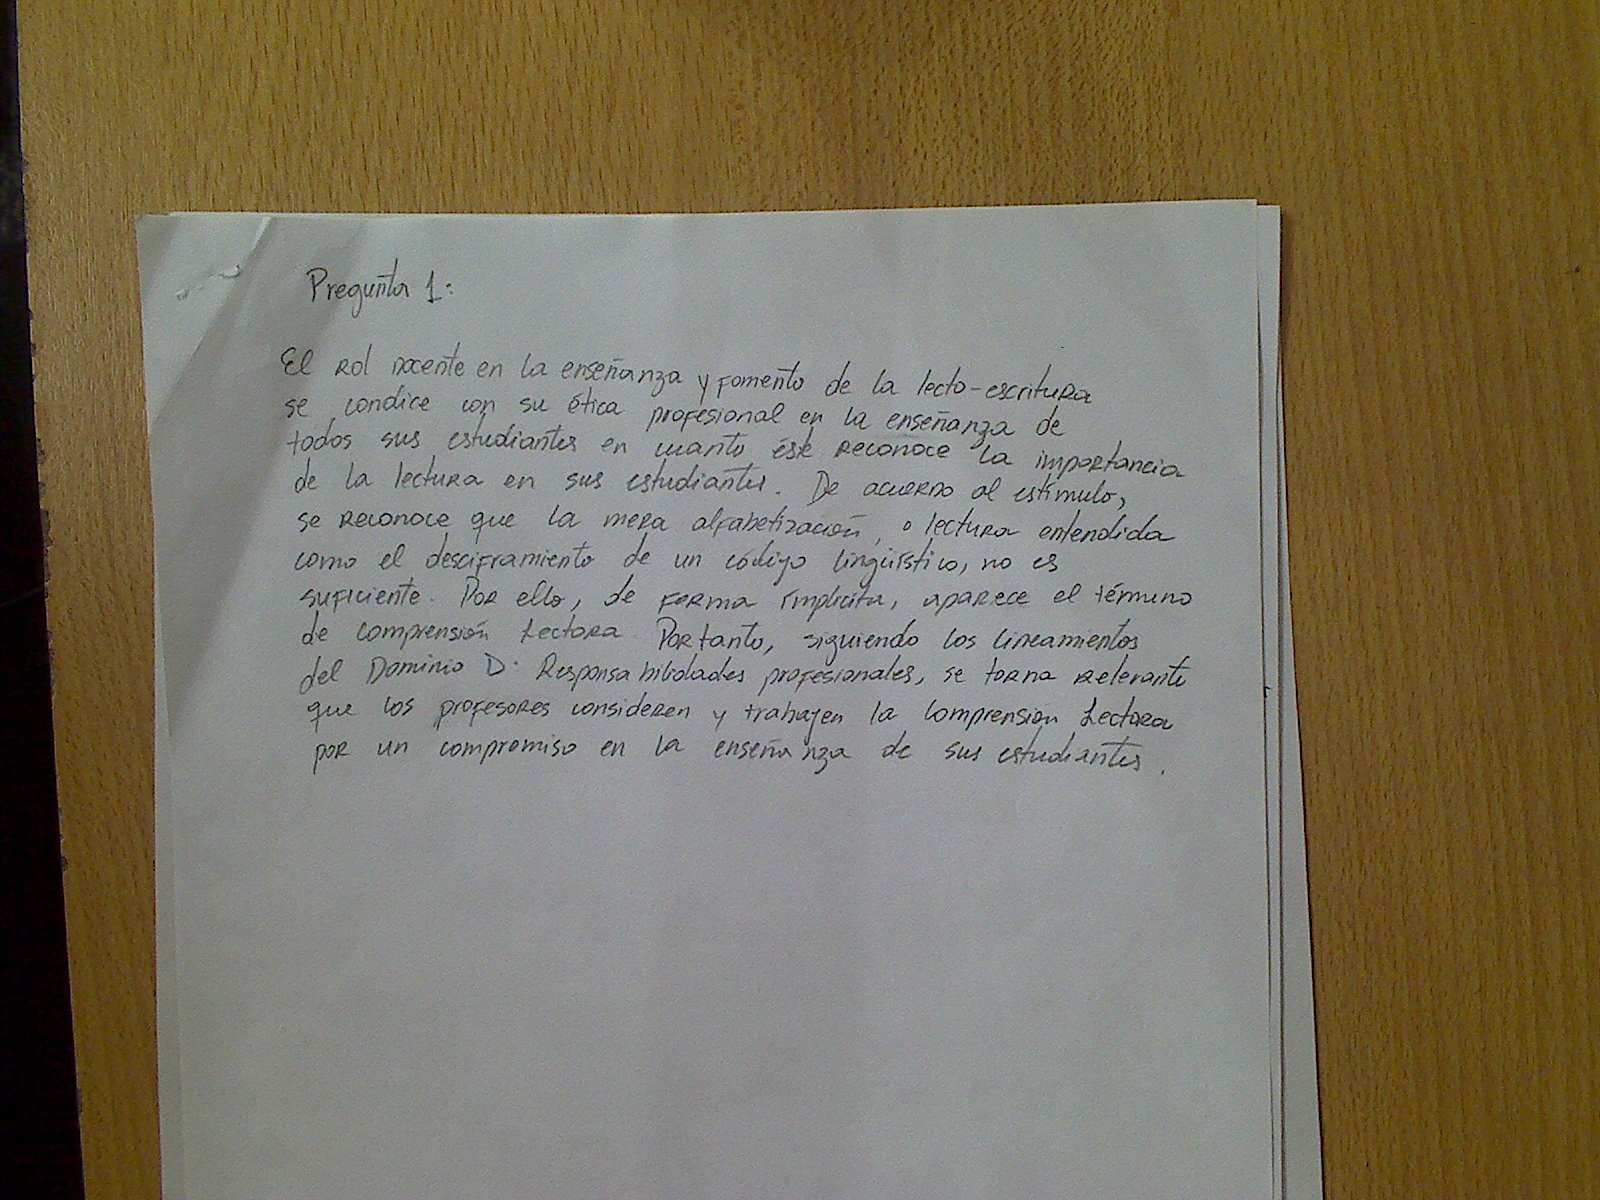 Pregunta 1:
El rol docente en la enseñanza y fomento de la lecto-escritura
se condice con su ética profesional en la enseñanza de
todos sus estudiantes en cuanto éste reconoce la importancia
de la lectura en sus estudiantes. De acuerdo al estímulo,
se reconoce que la mera alfabetización, o lectura entendida
como el desciframiento de un código lingüístico, no es
suficiente. Por ello, de forma implícita, aparece el término
de Comprensión Lectora. Por tanto, siguiendo los lineamientos
del Dominio D: Responsabilidades profesionales, se torna relevante
que los profesores consideren y trabajen la Comprensión Lectora
por un compromiso en la enseñanza de sus estudiantes.